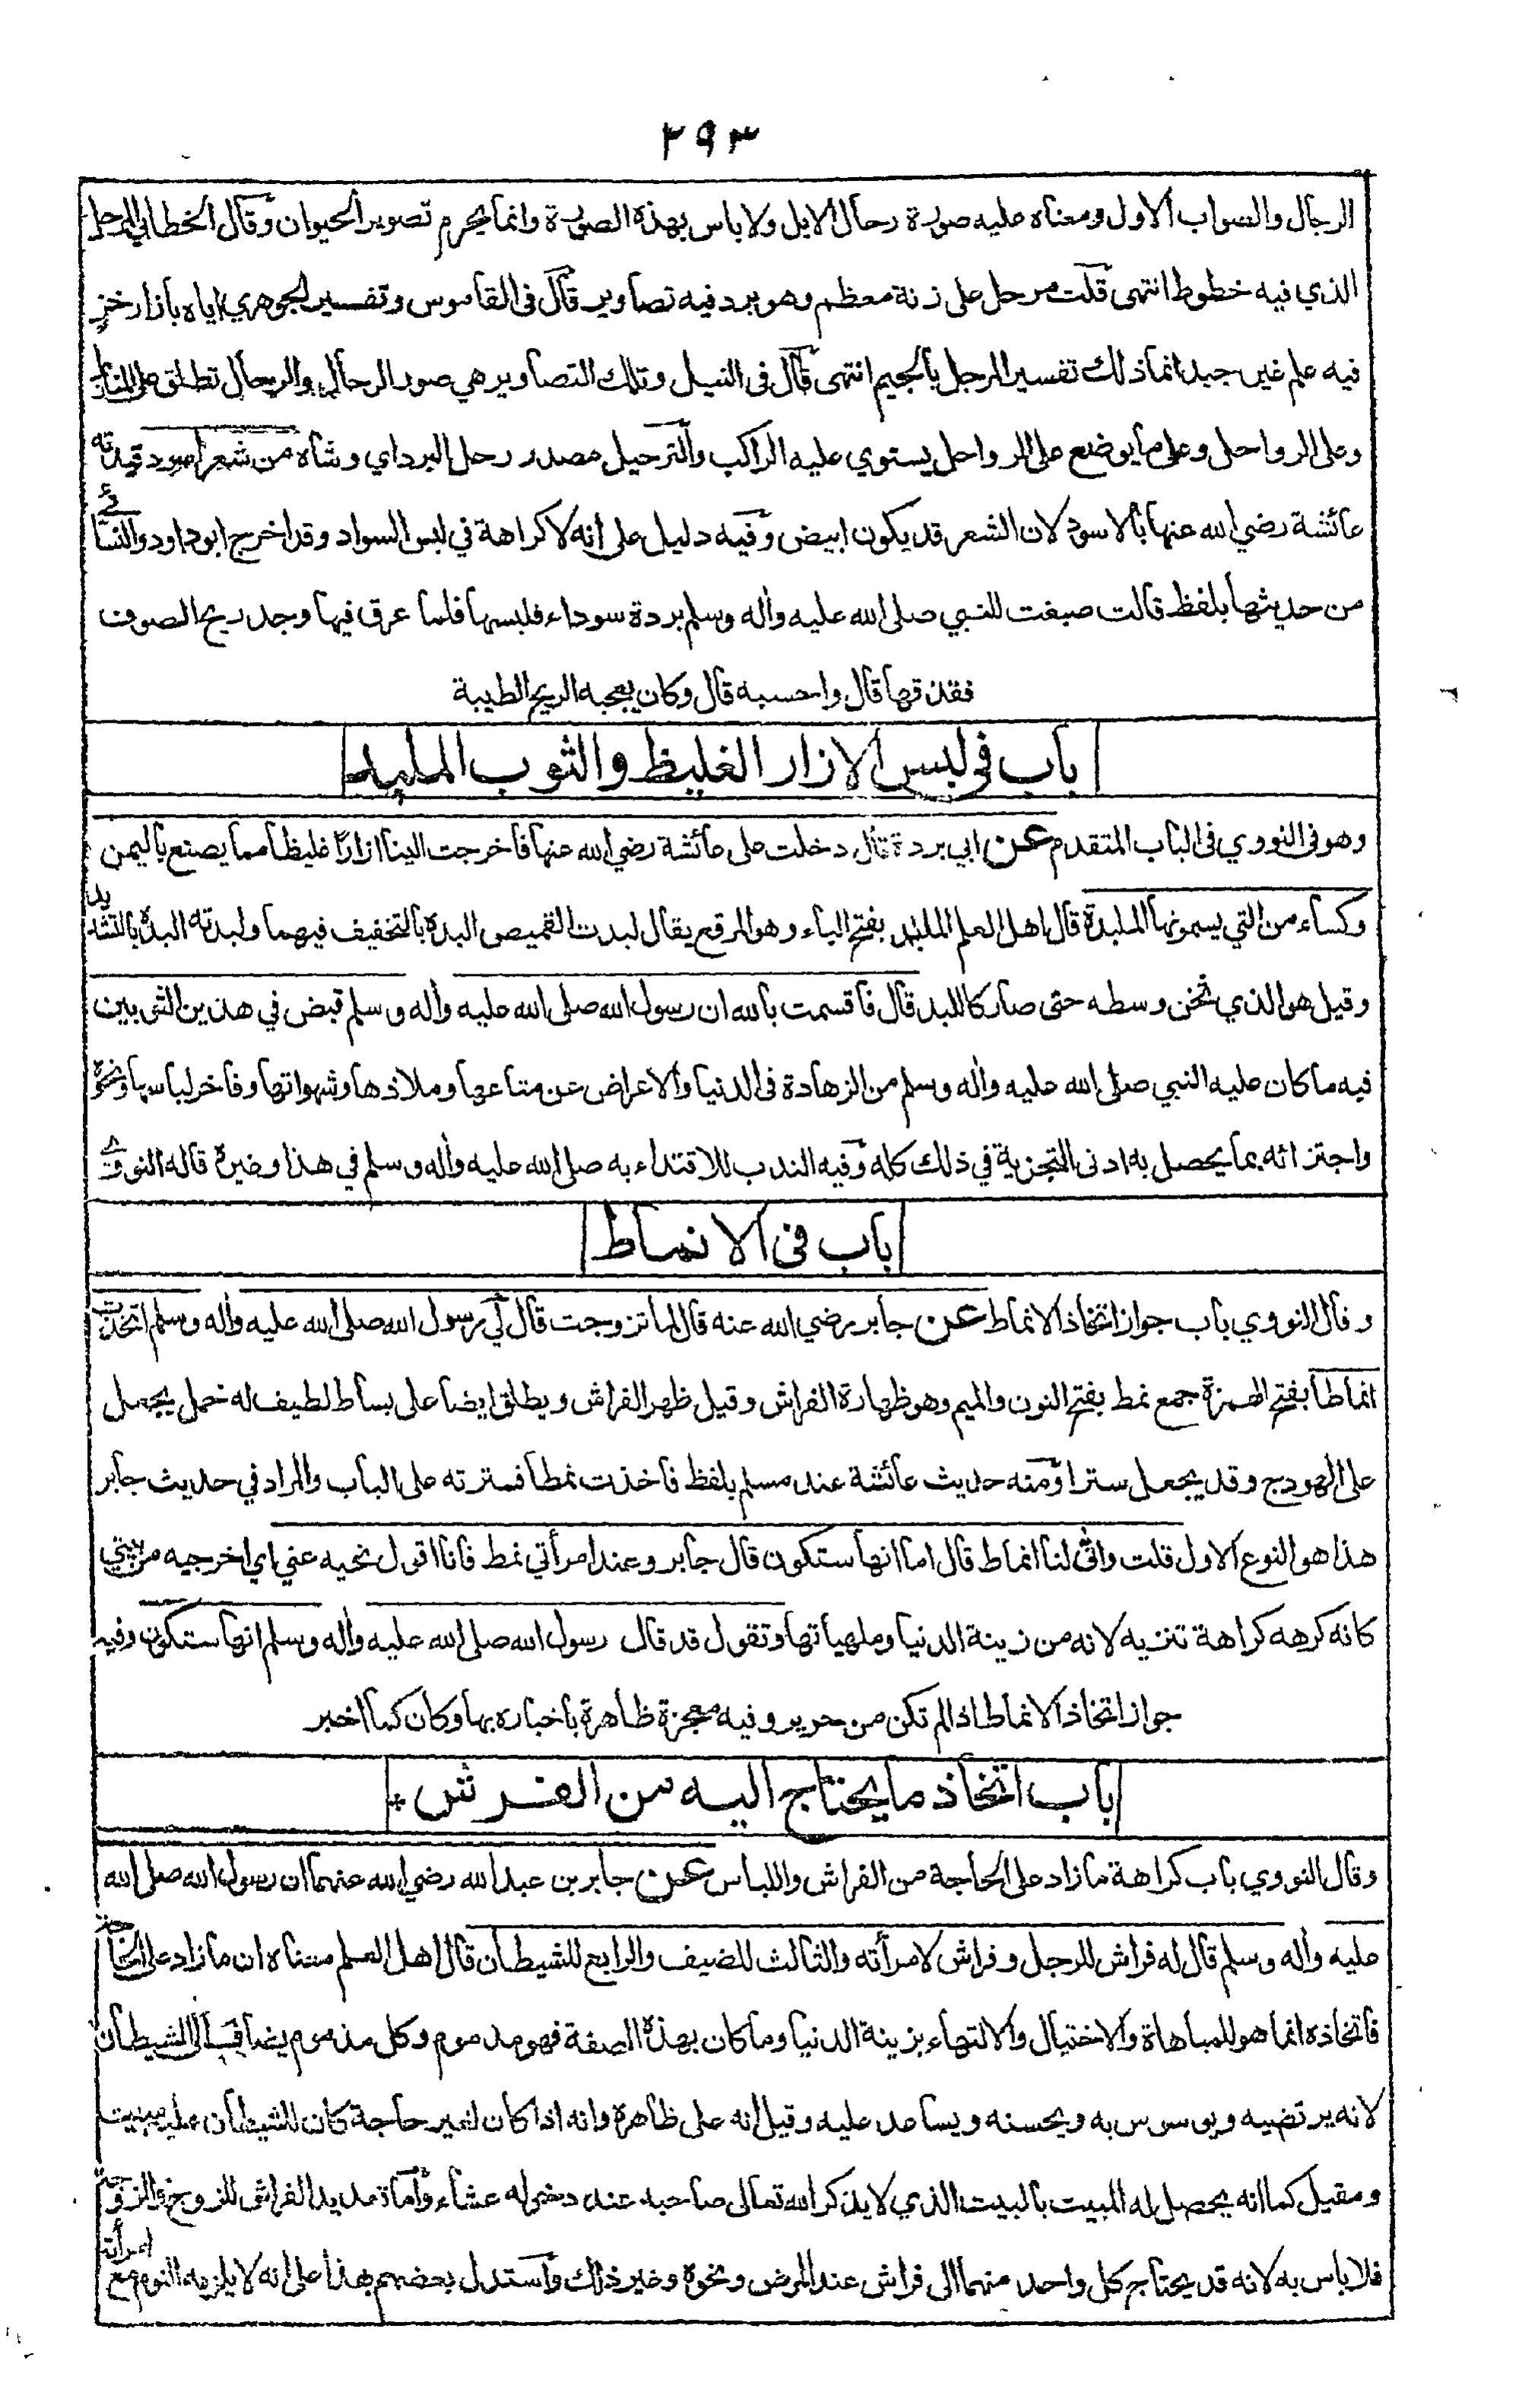 ٢٩٣
الرجال والصواب الاول ومعناه عليه صورة رحال الابل ولا باس بهذه الصورة وانما يحرم تصوير الحيوان وقال الخطابي المرحل
الذي فيه خطوط انتهى قلت مرحل على زنة معظم وهو برد فيه تصاوير قال فى القاموس وتفسير الجوهري اياه بازار خز
فيه علم غير جيد انما ذلك تفسير المرجل بالجيم انتهى قال فى النيل وتلك التصاوير هي صور الرحال والرحال تطلق على المنازل
وعلى الرواحل وعلى ما يوضع على الرواحل يستوي عليه الراكب والترحيل مصدر رحل البرد اي وشاه من شعر اسود قيدته
عائشة رضي الله عنها بالاسود لان الشعر قد يكون ابيض وفيه دليل على انه لا كراهة في لبس السواد وقد اخرج ابو داود والنسائي
من حديثها بلفظ قالت صبغت للنبي صلى الله عليه واله وسلم بردة سوداء فلبسها فلما عرق فيها وجد ريح الصوف
فقذقها قال واحسبه قال وكان يعجبه الريح الطيبة
باب فى لبس الازار الغليظ والثوب الملبد
وهو فى النووي فى الباب المتقدم عن ابي بردة قال دخلت على عائشة رضي الله عنها فاخرجت الينا ازارًا غليظا مما يصنع باليمن
وكساء من التي يسمونها الملبدة قال اهل العلم الملبد بفتح الباء وهو المرقع يقال لبدت القميص البده بالتخفيف فيهما ولبدته البده بالتشديد
وقيل هو الذي ثخن وسطه حتى صار كاللبد قال فاقسمت بالله ان رسول الله صلى الله عليه واله وسلم قبض في هذين الثوبين
فيه ما كان عليه النبي صلى الله عليه واله وسلم من الزهادة فى الدنيا والاعراض عن متاعها وملاذها وشهواتها وفاخر لباسها ونحوه
واجتزائه بما يحصل به ادنى التجزية في ذلك كله وفيه الندب للاقتداء به صلى الله عليه واله وسلم في هذا وغيره قاله النووي
باب فى الانماط
وقال النووي باب جواز اتخاذ الانماط عن جابر رضي الله عنه قال لما تزوجت قال لي رسول الله صلى الله عليه واله وسلم اتخذت
انماطا بفتح الهمزة جمع نمط بفتح النون والميم وهو ظهارة الفراش وقيل ظهر الفراش ويطلق ايضا على بساط لطيف له خمل يجعل
على الهودج وقد يجعل سترا ومنه حديث عائشة عند مسلم بلفظ فاخذت نمطا فسترته على الباب والمراد في حديث جابر
هذا هو النوع الاول قلت وانى لنا انماط قال اما انها ستكون قال جابر وعند امرأتي نمط فانا اقول نحيه عني اي اخرجيه من بيتي
كانه كرهه كراهة تنزيه لانه من زينة الدنيا وملهياتها وتقول قد قال رسول الله صلى الله عليه واله وسلم انها ستكون وفيه
جواز اتخاذ الانماط اذا لم تكن من حرير وفيه معجزة ظاهرة باخباره بها وكان كما اخبر
باب اتخاذ ما يحتاج اليه من الفرش *
وقال النووي باب كراهة ما زاد على الحاجة من الفراش واللباس عن جابر بن عبد الله رضي الله عنهما ان رسول الله صلى الله
عليه واله وسلم قال له فراش للرجل وفراش لامرأته والثالث للضيف والرابع للشيطان قال اهل العلم معناه ان ما زاد على الحاجة
فاتخاذه انما هو للمباهاة والاختيال والالتهاء بزينة الدنيا وما كان بهذه الصفة فهو مذموم وكل مذموم يضاف الى الشيطان
لانه يرتضيه ويوسوس به ويحسنه ويساعد عليه وقيل انه على ظاهره وانه اذا كان لغير حاجة كان للشيطان عليه مبيت
ومقيل كما انه يحصل له المبيت بالبيت الذي لا يذكر الله تعالى صاحبه عند دخوله عشاء واما تعديد الفراش للزوج والزوجة
فلا باس به لانه قد يحتاج كل واحد منهما الى فراش عند المرض ونحوه وغير ذلك واستدل بعضهم بهذا على انه لا يلزمه النوم مع امرأته